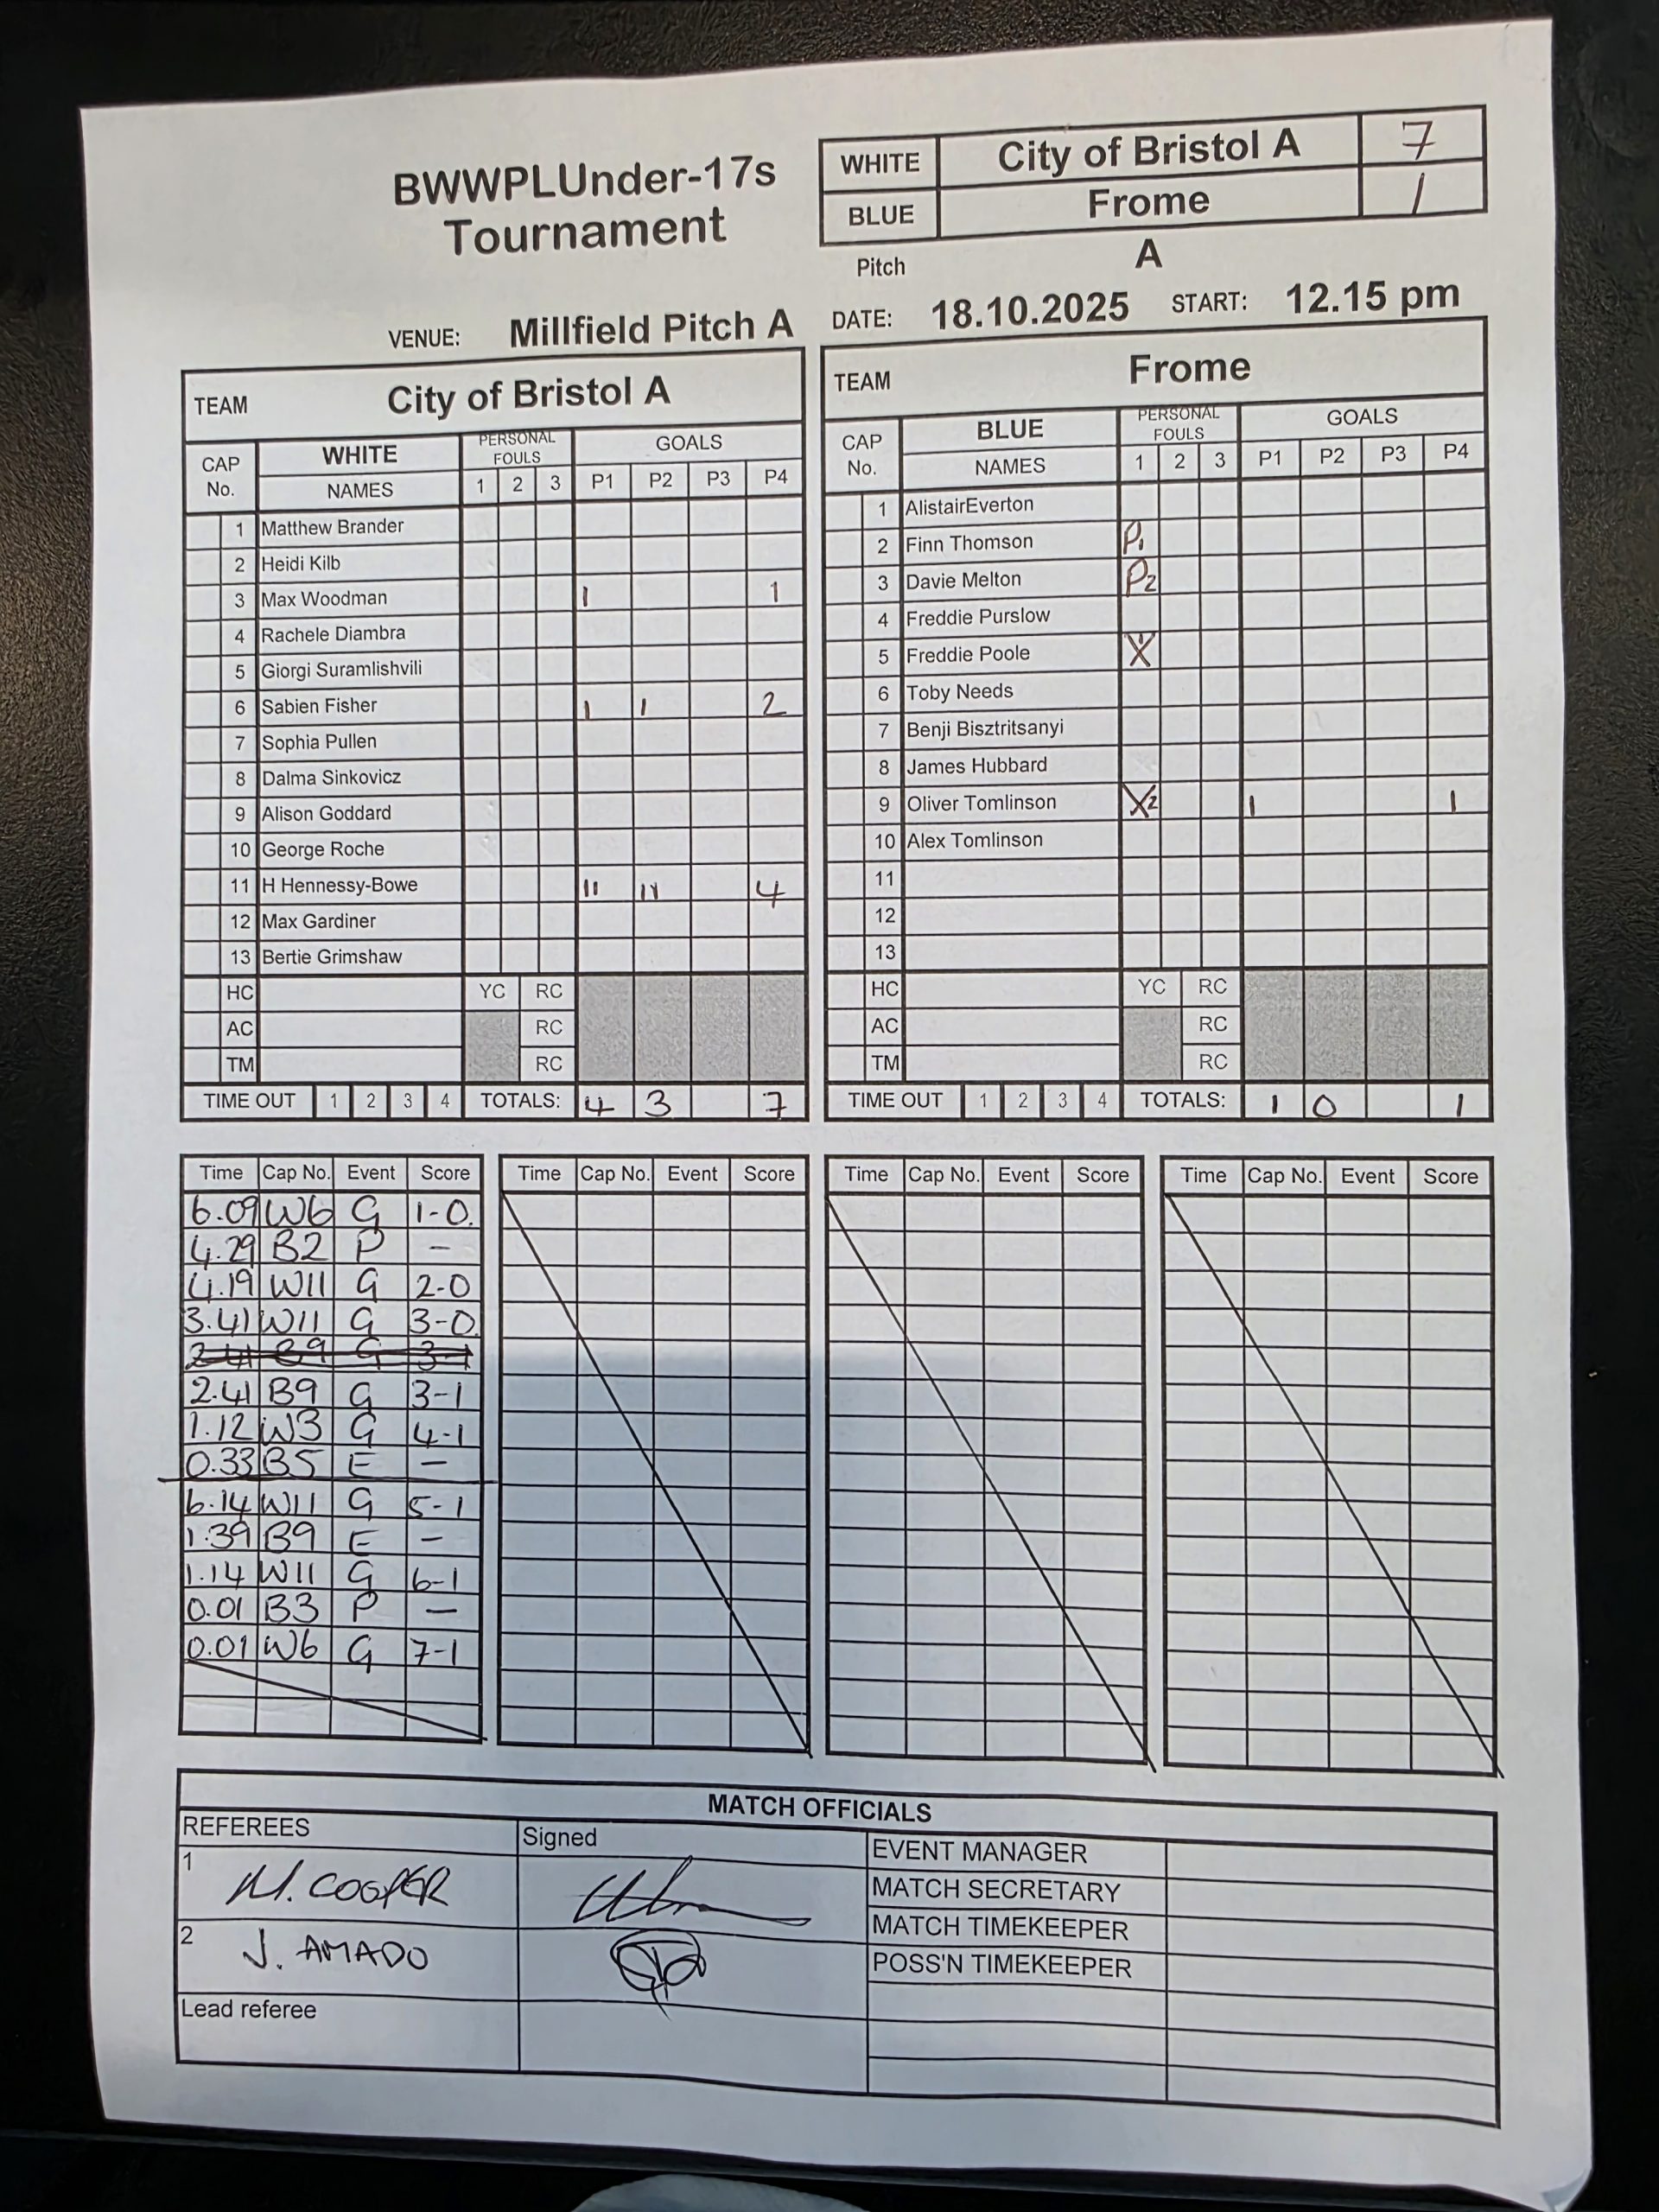 BWWPLUnder-17s
Tournament
WHITE City of Bristol A 7
BLUE Frome 1
Pitch A
VENUE: Millfield Pitch A DATE: 18.10.2025 START: 12.15 pm
TEAM City of Bristol A
CAP No. WHITE NAMES PERSONAL FOULS GOALS
1 2 3 P1 P2 P3 P4
1 Matthew Brander
2 Heidi Kilb
3 Max Woodman 1 1
4 Rachele Diambra
5 Giorgi Suramlishvili
6 Sabien Fisher 1 1 2
7 Sophia Pullen
8 Dalma Sinkovicz
9 Alison Goddard
10 George Roche
11 H Hennessy-Bowe 11 11 4
12 Max Gardiner
13 Bertie Grimshaw
HC YC RC
AC RC
TM RC
TIME OUT 1 2 3 4 TOTALS: 4 3 7
TEAM Frome
CAP No. BLUE NAMES PERSONAL FOULS GOALS
1 2 3 P1 P2 P3 P4
1 AlistairEverton
2 Finn Thomson P1
3 Davie Melton P2
4 Freddie Purslow
5 Freddie Poole X1
6 Toby Needs
7 Benji Bisztritsanyi
8 James Hubbard
9 Oliver Tomlinson X2 1 1
10 Alex Tomlinson
11
12
13
HC YC RC
AC RC
TM RC
TIME OUT 1 2 3 4 TOTALS: 1 0 1
Time Cap No. Event Score
6.09 W6 G 1-0.
4.29 B2 P -
4.19 W11 G 2-0
3.41 W11 G 3-0.
2.41 B9 G 3-1
2.41 B9 G 3-1
1.12 W3 G 4-1
0.33 B5 E -
6.14 W11 G 5-1
1.39 B9 E -
1.14 W11 G 6-1
0.01 B3 P -
0.01 W6 G 7-1
Time Cap No. Event Score
Time Cap No. Event Score
Time Cap No. Event Score
MATCH OFFICIALS
REFEREES Signed
1 M. COOPER
2 J. AMADO
Lead referee
EVENT MANAGER
MATCH SECRETARY
MATCH TIMEKEEPER
POSS'N TIMEKEEPER